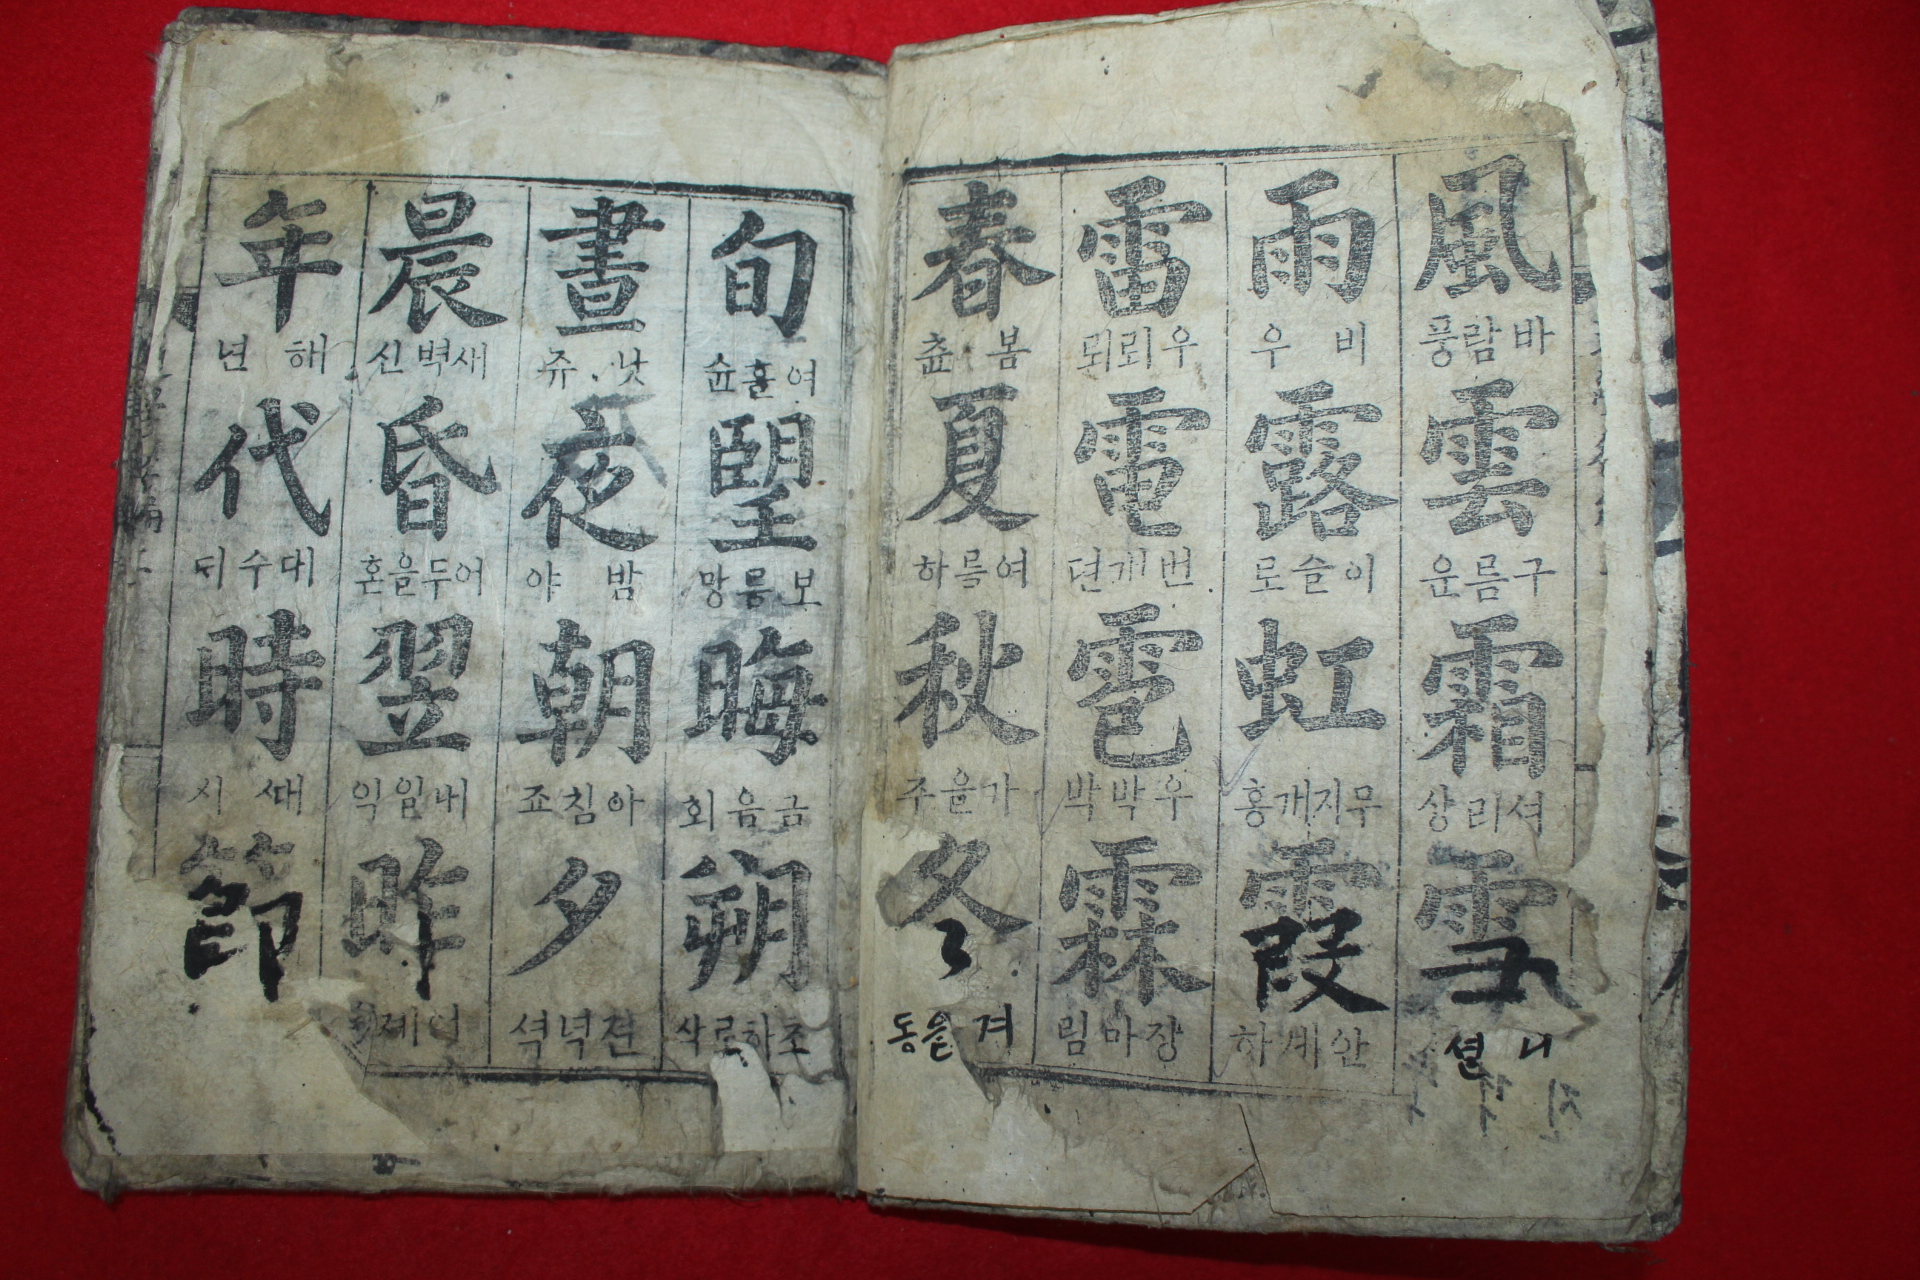 風 바람풍 雲 구름운 霜 셔리상 雪 셜
雨 비우 露 이슬로 虹 무지개홍 霞 안계하
雷 우뢰뢰 電 번개뎐 雹 우박박 霖 쟝마림
春 봄츈 夏 여름하 秋 가을주 冬 겨을동
旬 여흘슌 朢 보름망 晦 금음회 朔 초하로삭
晝 낫쥬 夜 밤야 朝 아침죠 夕 젼녁셕
晨 새벽신 昏 어두을혼 翌 내일익 昨 어제
年 해년 代 대수디 時 ᄯᅢ시 節